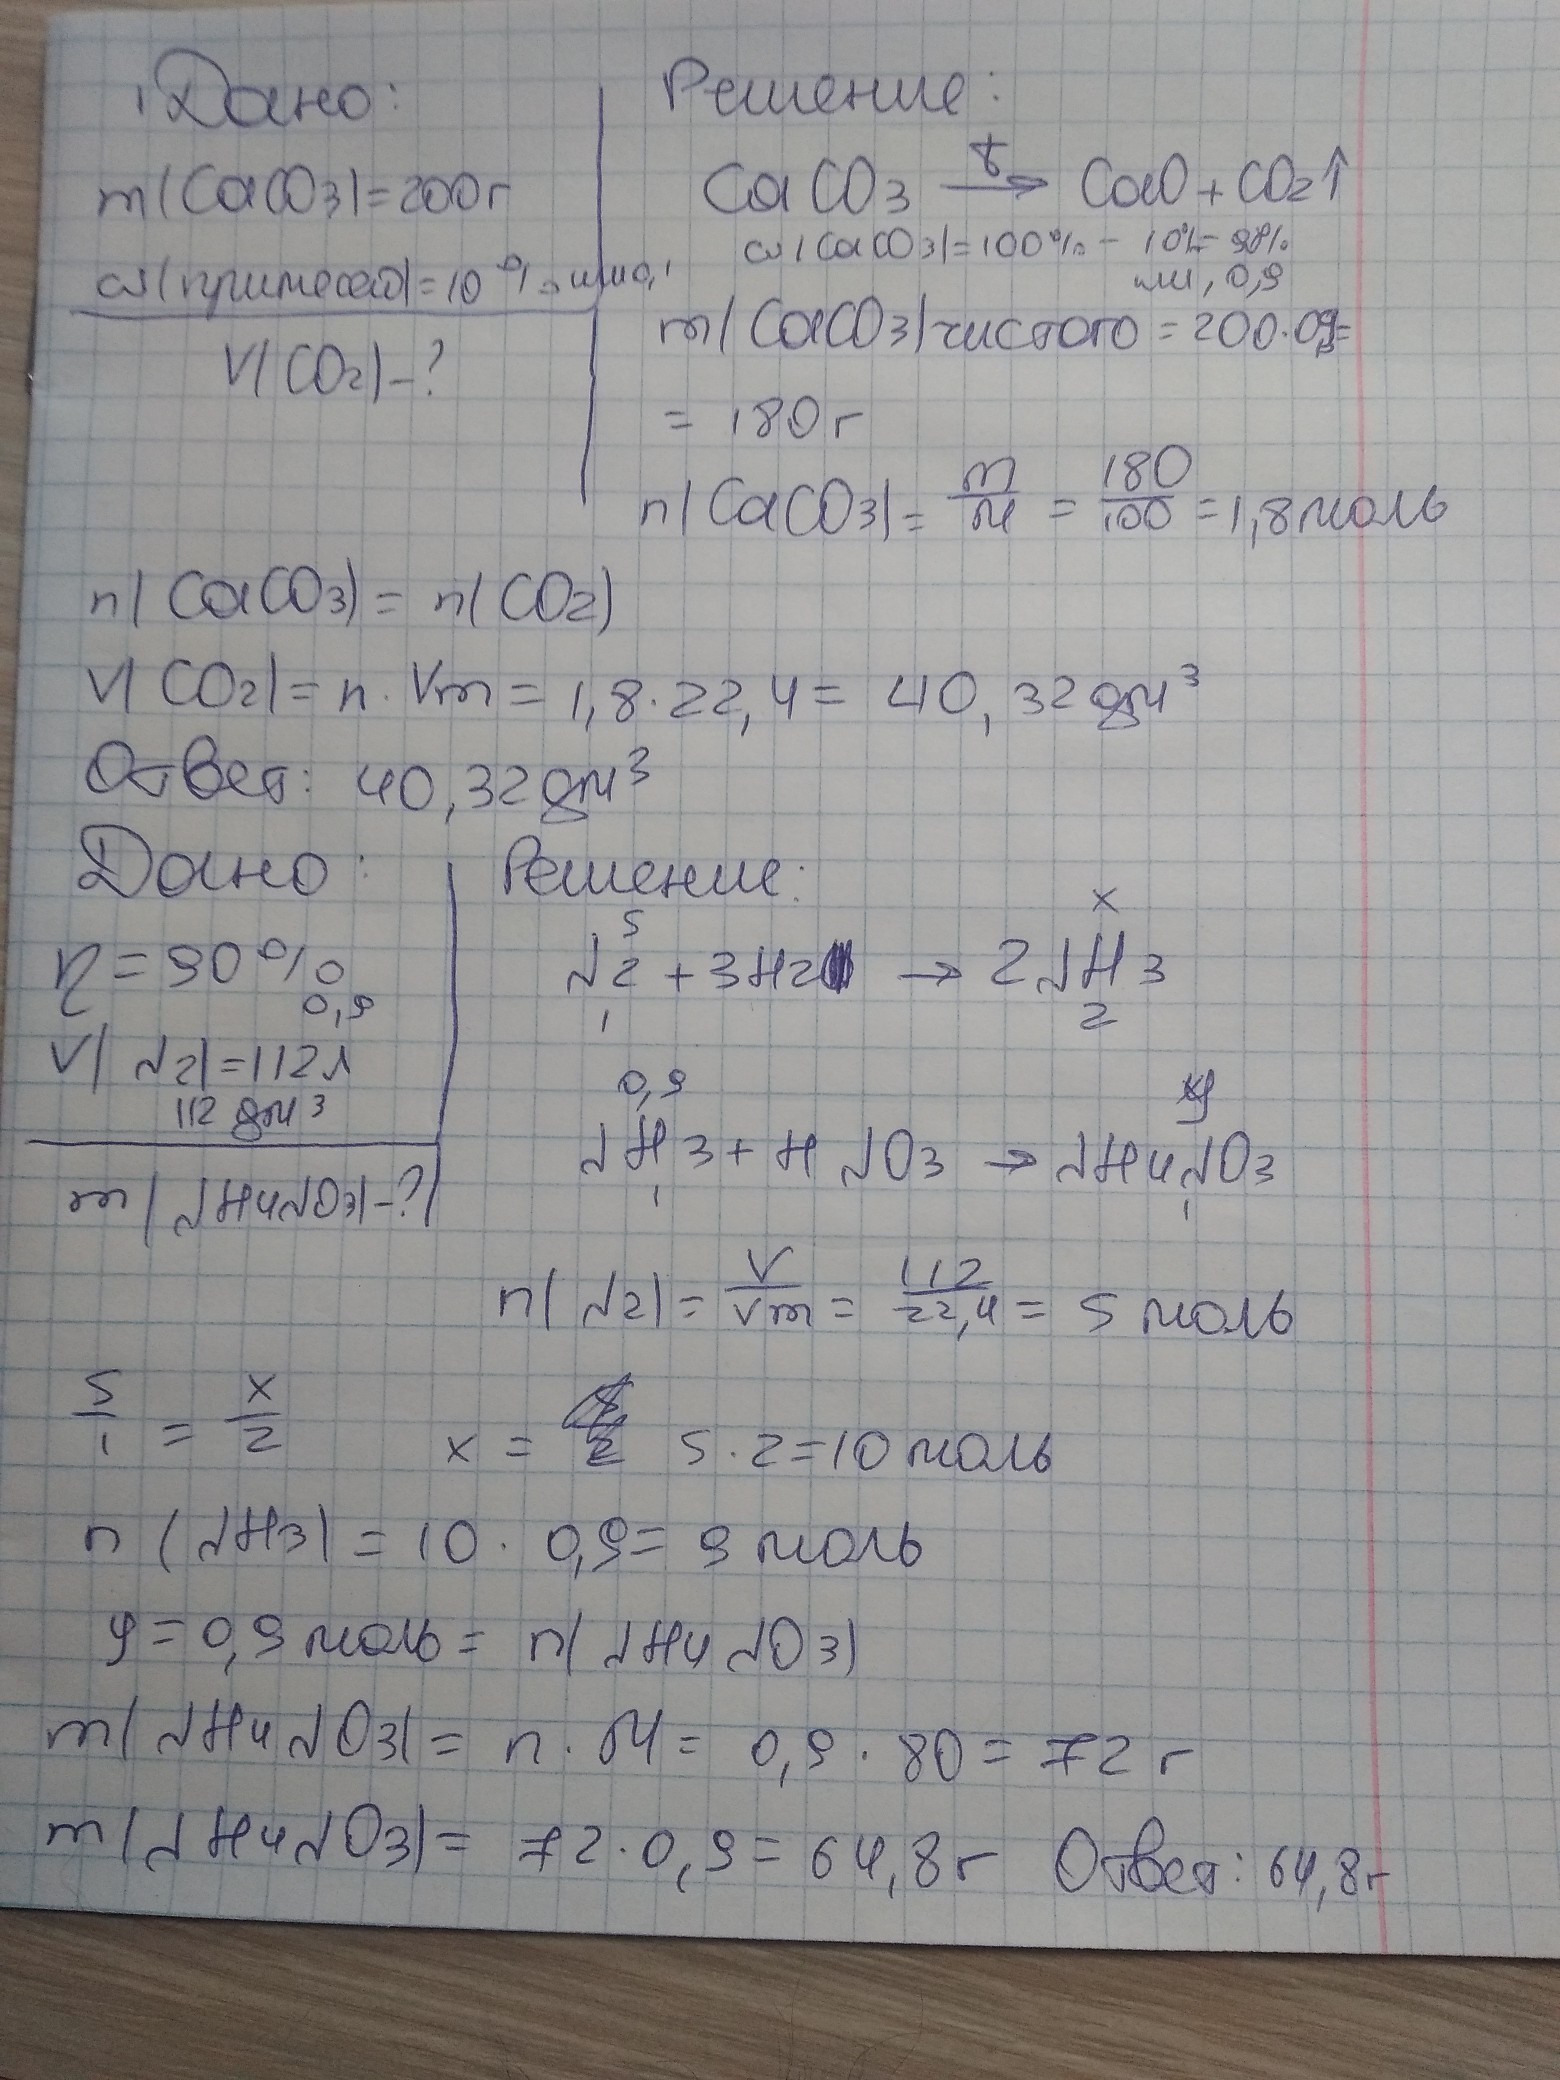 Дано:
m(CaCO3)=200г
ω(примесей)=10% или 0,1
V(CO2)-?
Решение:
CaCO3 t→ CaO+CO2↑
ω(CaCO3)=100%-10%=90%
или 0,9
m(CaCO3)чистого=200·0,9=
=180г
n(CaCO3)=m/M=180/100=1,8моль
n(CaCO3)=n(CO2)
V(CO2)=n·Vm=1,8·22,4=40,32дм³
Ответ: 40,32дм³
Дано:
η=90%
0,9
V(N2)=112л
112дм³
m(NH4NO3)-?
Решение:
5 x
N2+3H2→2NH3
1 2
0,9 y
NH3+HNO3→NH4NO3
1 1
n(N2)=V/Vm=112/22,4=5моль
5/1=x/2 x=5·2=10моль
n(NH3)=10·0,9=9моль
y=0,9моль=n(NH4NO3)
m(NH4NO3)=n·M=0,9·80=72г
m(NH4NO3)=72·0,9=64,8г Ответ: 64,8г